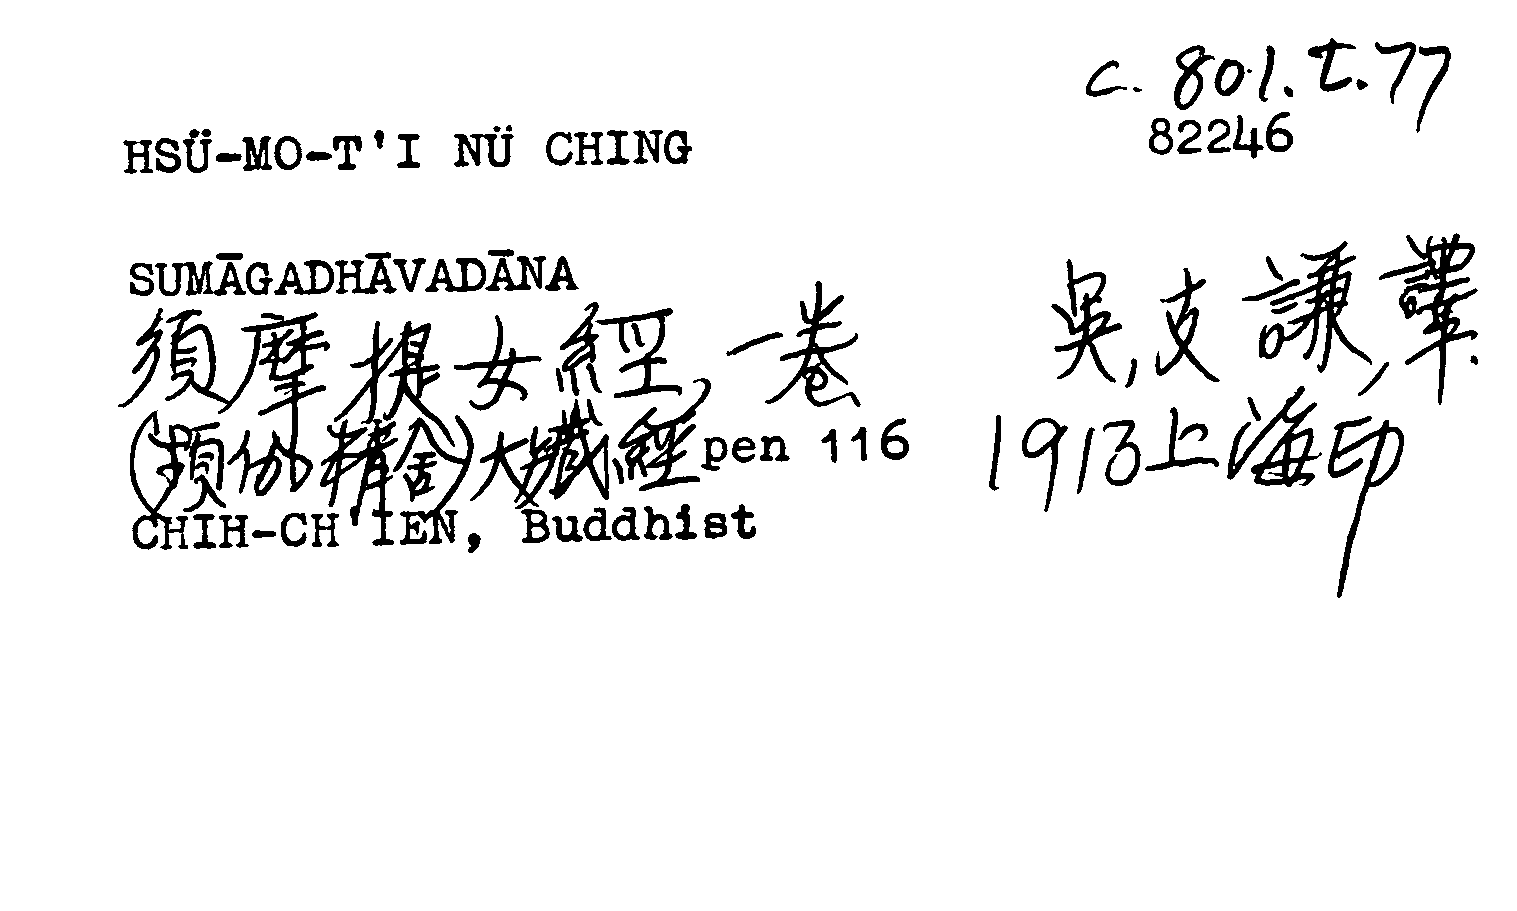 C. 801. t. 77
82246
HSÜ-MO-T'I NÜ CHING
SUMĀGADHĀVADĀNA
須摩提女經, 一卷 吳, 支謙, 譯.
(頻伽精舍)大藏經 pen 116 1913上海印
CHIH-CH'IEN, Buddhist